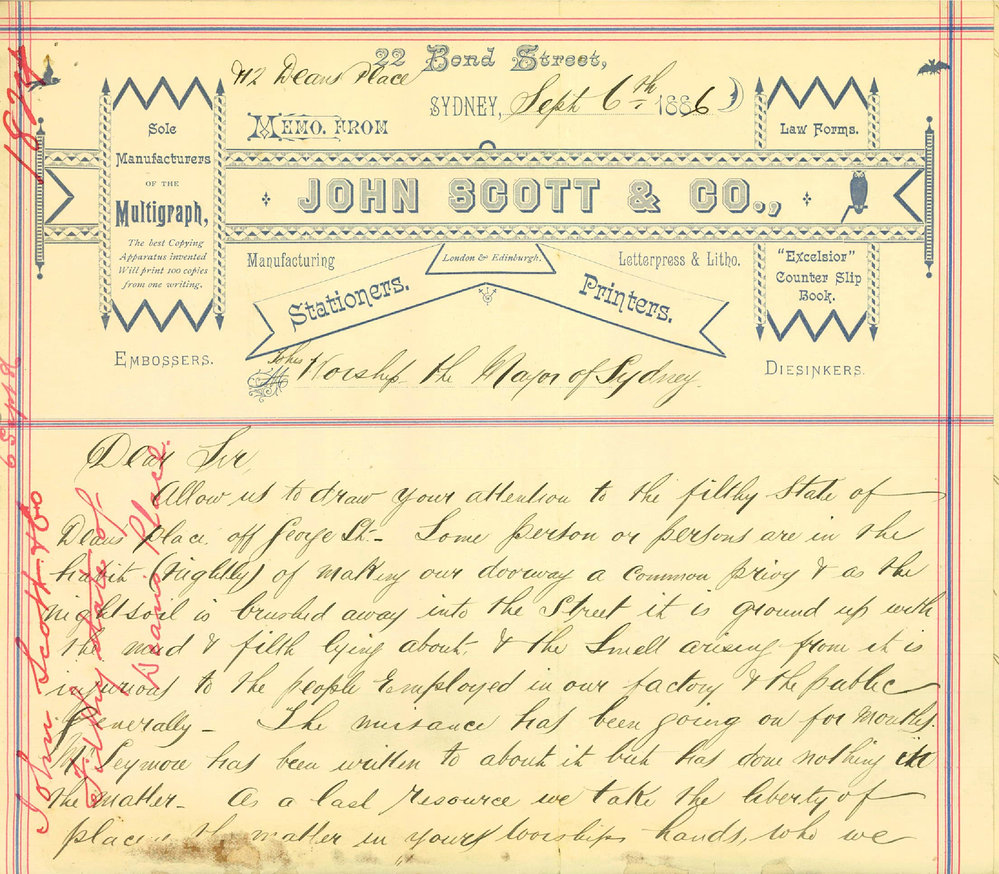 22 Bond Street,
42 Deans Place
SYDNEY, Sept 6th 1886
MEMO. FROM
JOHN SCOTT & CO.,
Sole
Manufacturers
OF THE
Multigraph,
The best Copying
Apparatus invented
Will print 100 copies
from one writing.
EMBOSSERS.
Law Forms.
"Excelsior"
Counter Slip
Book.
DIESINKERS.
Manufacturing
London & Edinburgh.
Letterpress & Litho.
Stationers.
Printers.
To his Worship the Mayor of Sydney
Dear Sir,
Allow us to draw your attention to the filthy state of
Deans place off George St. - Some person or persons are in the
habit (nightly) of making our doorway a common privy & as the
nightsoil is brushed away into the street it is ground up with
the mud & filth lying about, & the smell arising from it is
injurious to the people employed in our factory & the public
generally - The nuisance has been going on for months.
Mr Seymore has been written to about it but has done nothing in
the matter - As a last resource we take the liberty of
placing the matter in yours worships hands, who we
John Scott & Co
6 Sept 8
Filthy state of
Deans Place.